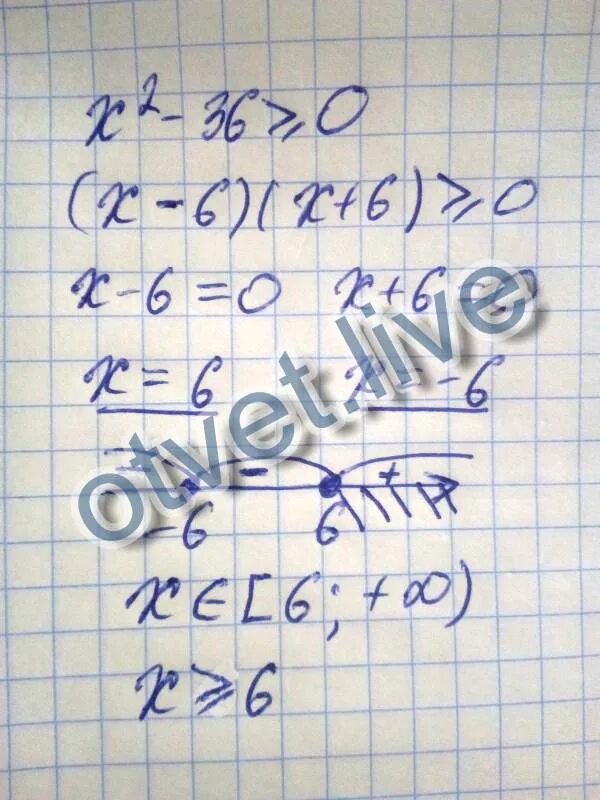 x² - 36 ⩾ 0
(x - 6)(x + 6) ⩾ 0
x - 6 = 0 x + 6 = 0
x = 6 x = -6
- +
-6 6
x ∈ [6; +∞)
x ⩾ 6
otvet.live